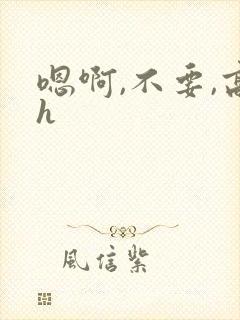 嗯啊,不要,高
h
風信紫